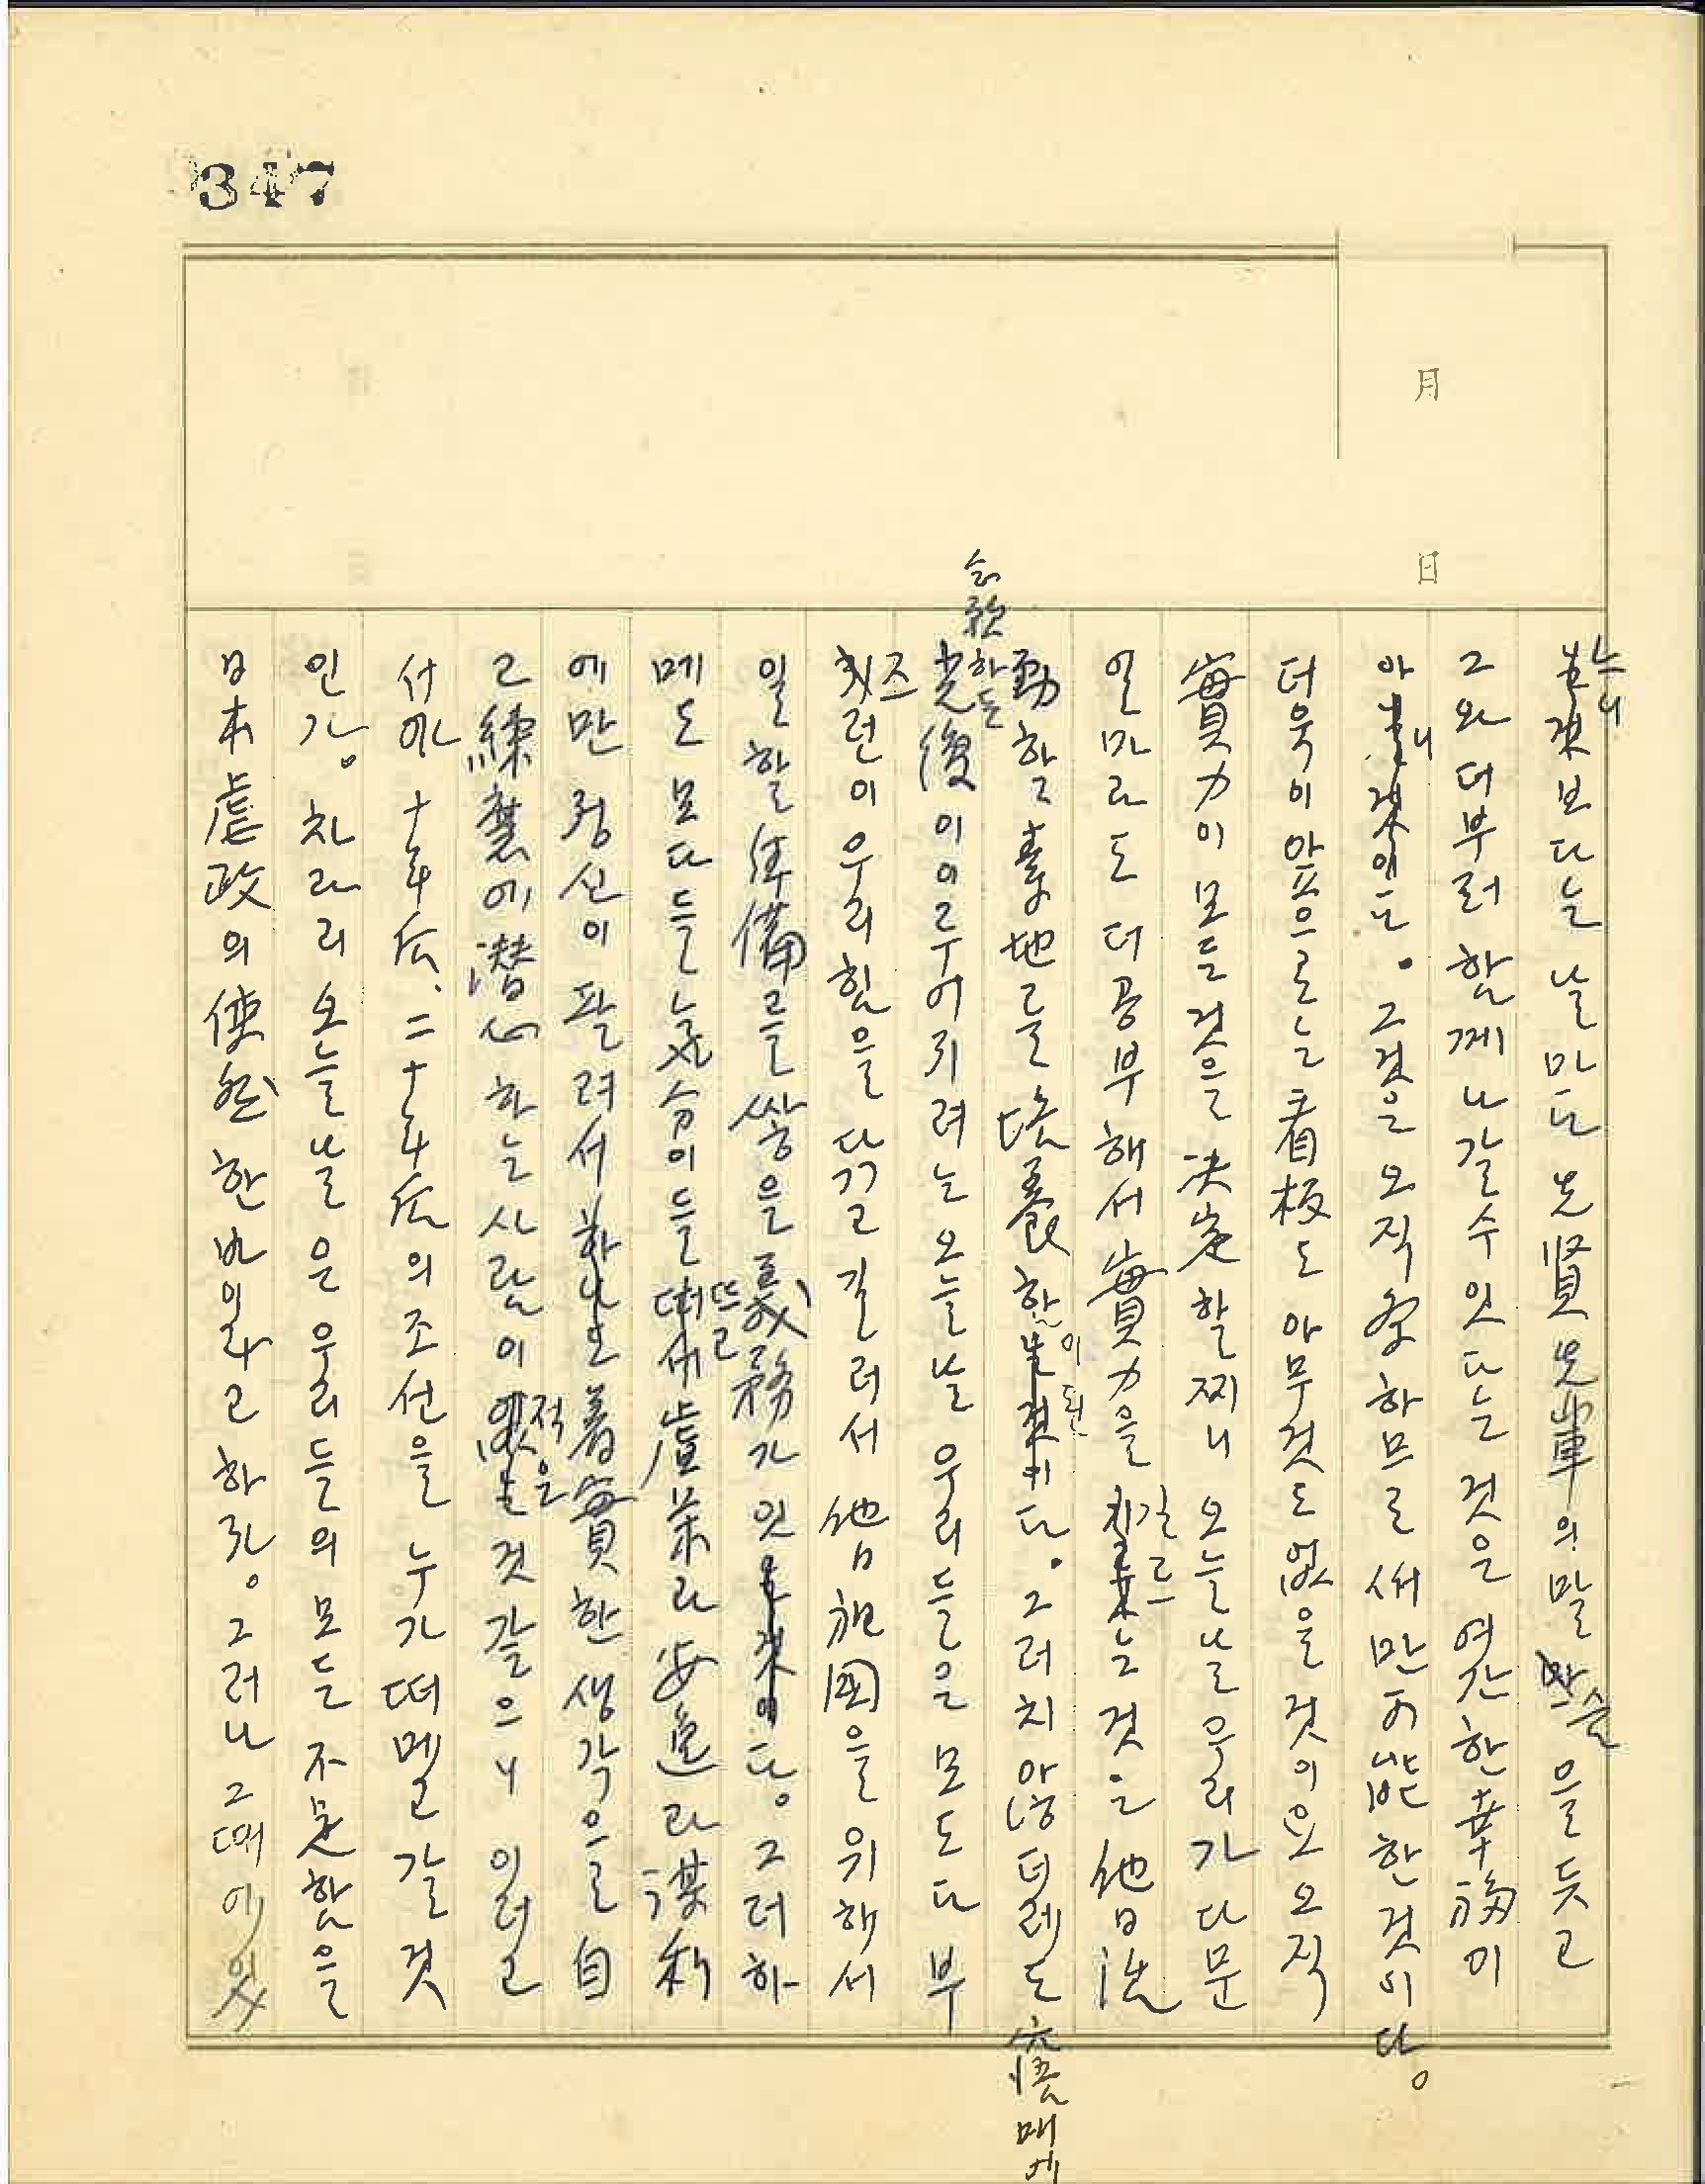 347
月
日
느니보다는 날마다 先賢先輩의 말슴을 듯고
그와 더부러 함께 나갈수 잇다는 것은 여간한 幸福이
아니다. 그것은 오직 努하므로써만 可能한 것이다。
더욱이 앞으로는 看板도 아무것도 없을 것이요 오직
實力이 모든 것을 決定할찌니 오늘날 우리가 다문
얼마라도 더 공부해서 實力을 길르는 것은 他日 活
動할 素地를 培養함이 된다. 그러치 않더레도 寤寐에
念願하든
光復이 이루어지려는 오늘날 우리들은 모도다 부
즈런이 우리 힘을 닦고 길러서 他日 祖國을 위해서
일할 準備를 쌓을 義務가 잇다。 그러하
메도 모다들 눈 들 뜨고 虛榮라 安逸라 謀利
에만 정신이 팔려서 着實한 생각으로 自
己練磨에 潛心하는 사람이 적은 것 같으니 이러고
서야 十年后、二十年后의 조선을 누가 떠메고 갈 것
인가。 차라리 오늘날은 우리들의 모든 不足함을
日本虐政의 使然한 바이라고 하자。 그러나 그때에 잇